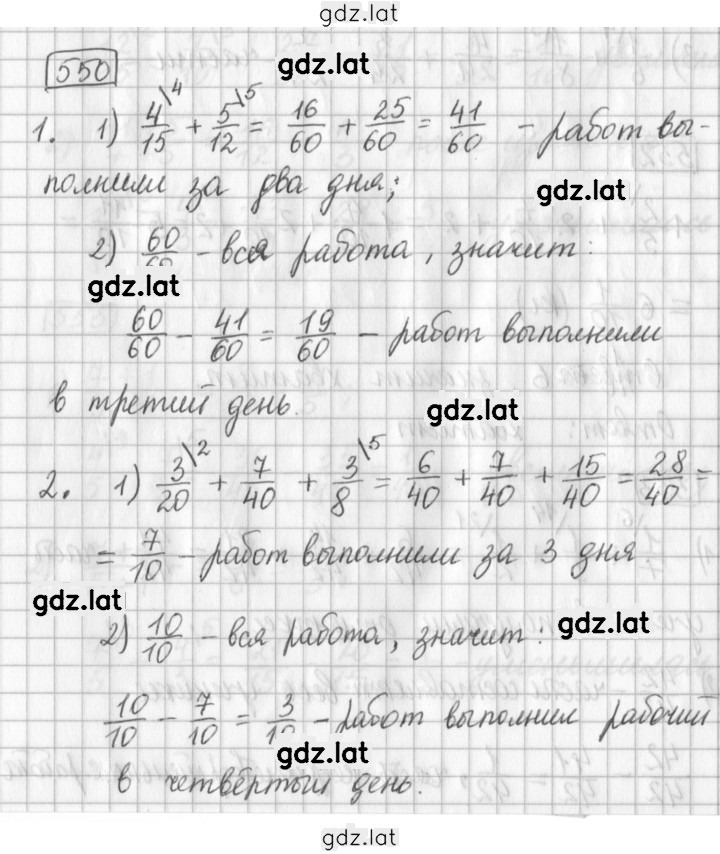 gdz.lat
550
gdz.lat
1. 1) 4/15 \4 + 5/12 \5 = 16/60 + 25/60 = 41/60 - работ вы-
полнили за два дня;
gdz.lat
2) 60/60 - вся работа, значит:
gdz.lat
60/60 - 41/60 = 19/60 - работ выполнили
в третий день.
gdz.lat
2. 1) 3/20 \2 + 7/40 + 3/8 \5 = 6/40 + 7/40 + 15/40 = 28/40 =
= 7/10 - работ выполнили за 3 дня
gdz.lat
2) 10/10 - вся работа, значит:
gdz.lat
10/10 - 7/10 = 3/10 - работ выполнил рабочий
gdz.lat
в четвёртый день.
gdz.lat